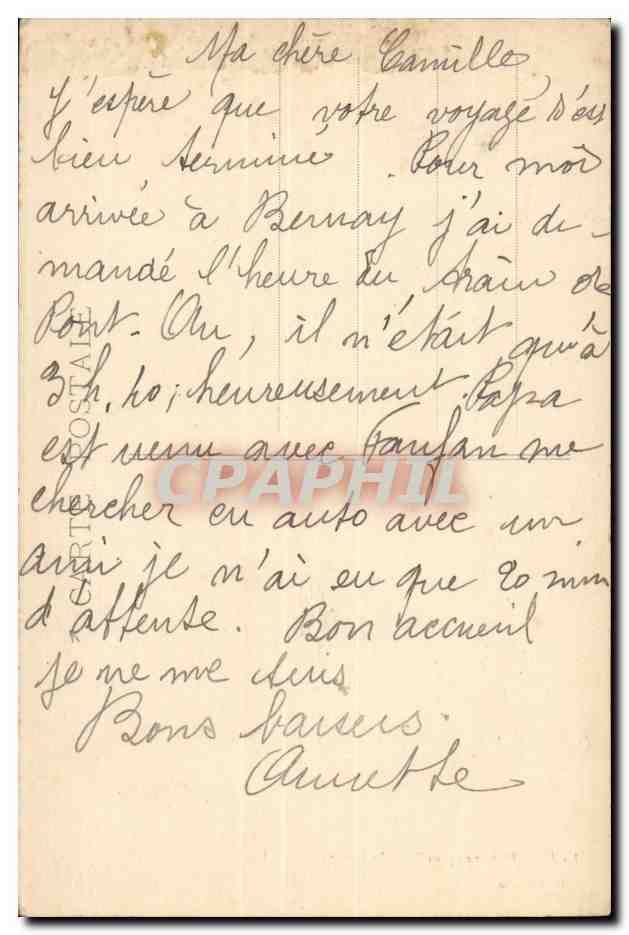 Ma chère Camille,
J'espère que votre voyage s'est
bien terminé. Pour moi
arrivée à Bernay j'ai de-
mandé l'heure du train de
Pont-Au, il n'était qu'à
3h,40; heureusement Papa
est venu avec Fanfan me
chercher en auto avec un
ami je n'ai eu que 20 min
d'attente. Bon accueil
je ne me suis
Bons baisers.
Annette
CARTE POSTALE
CPAPHIL